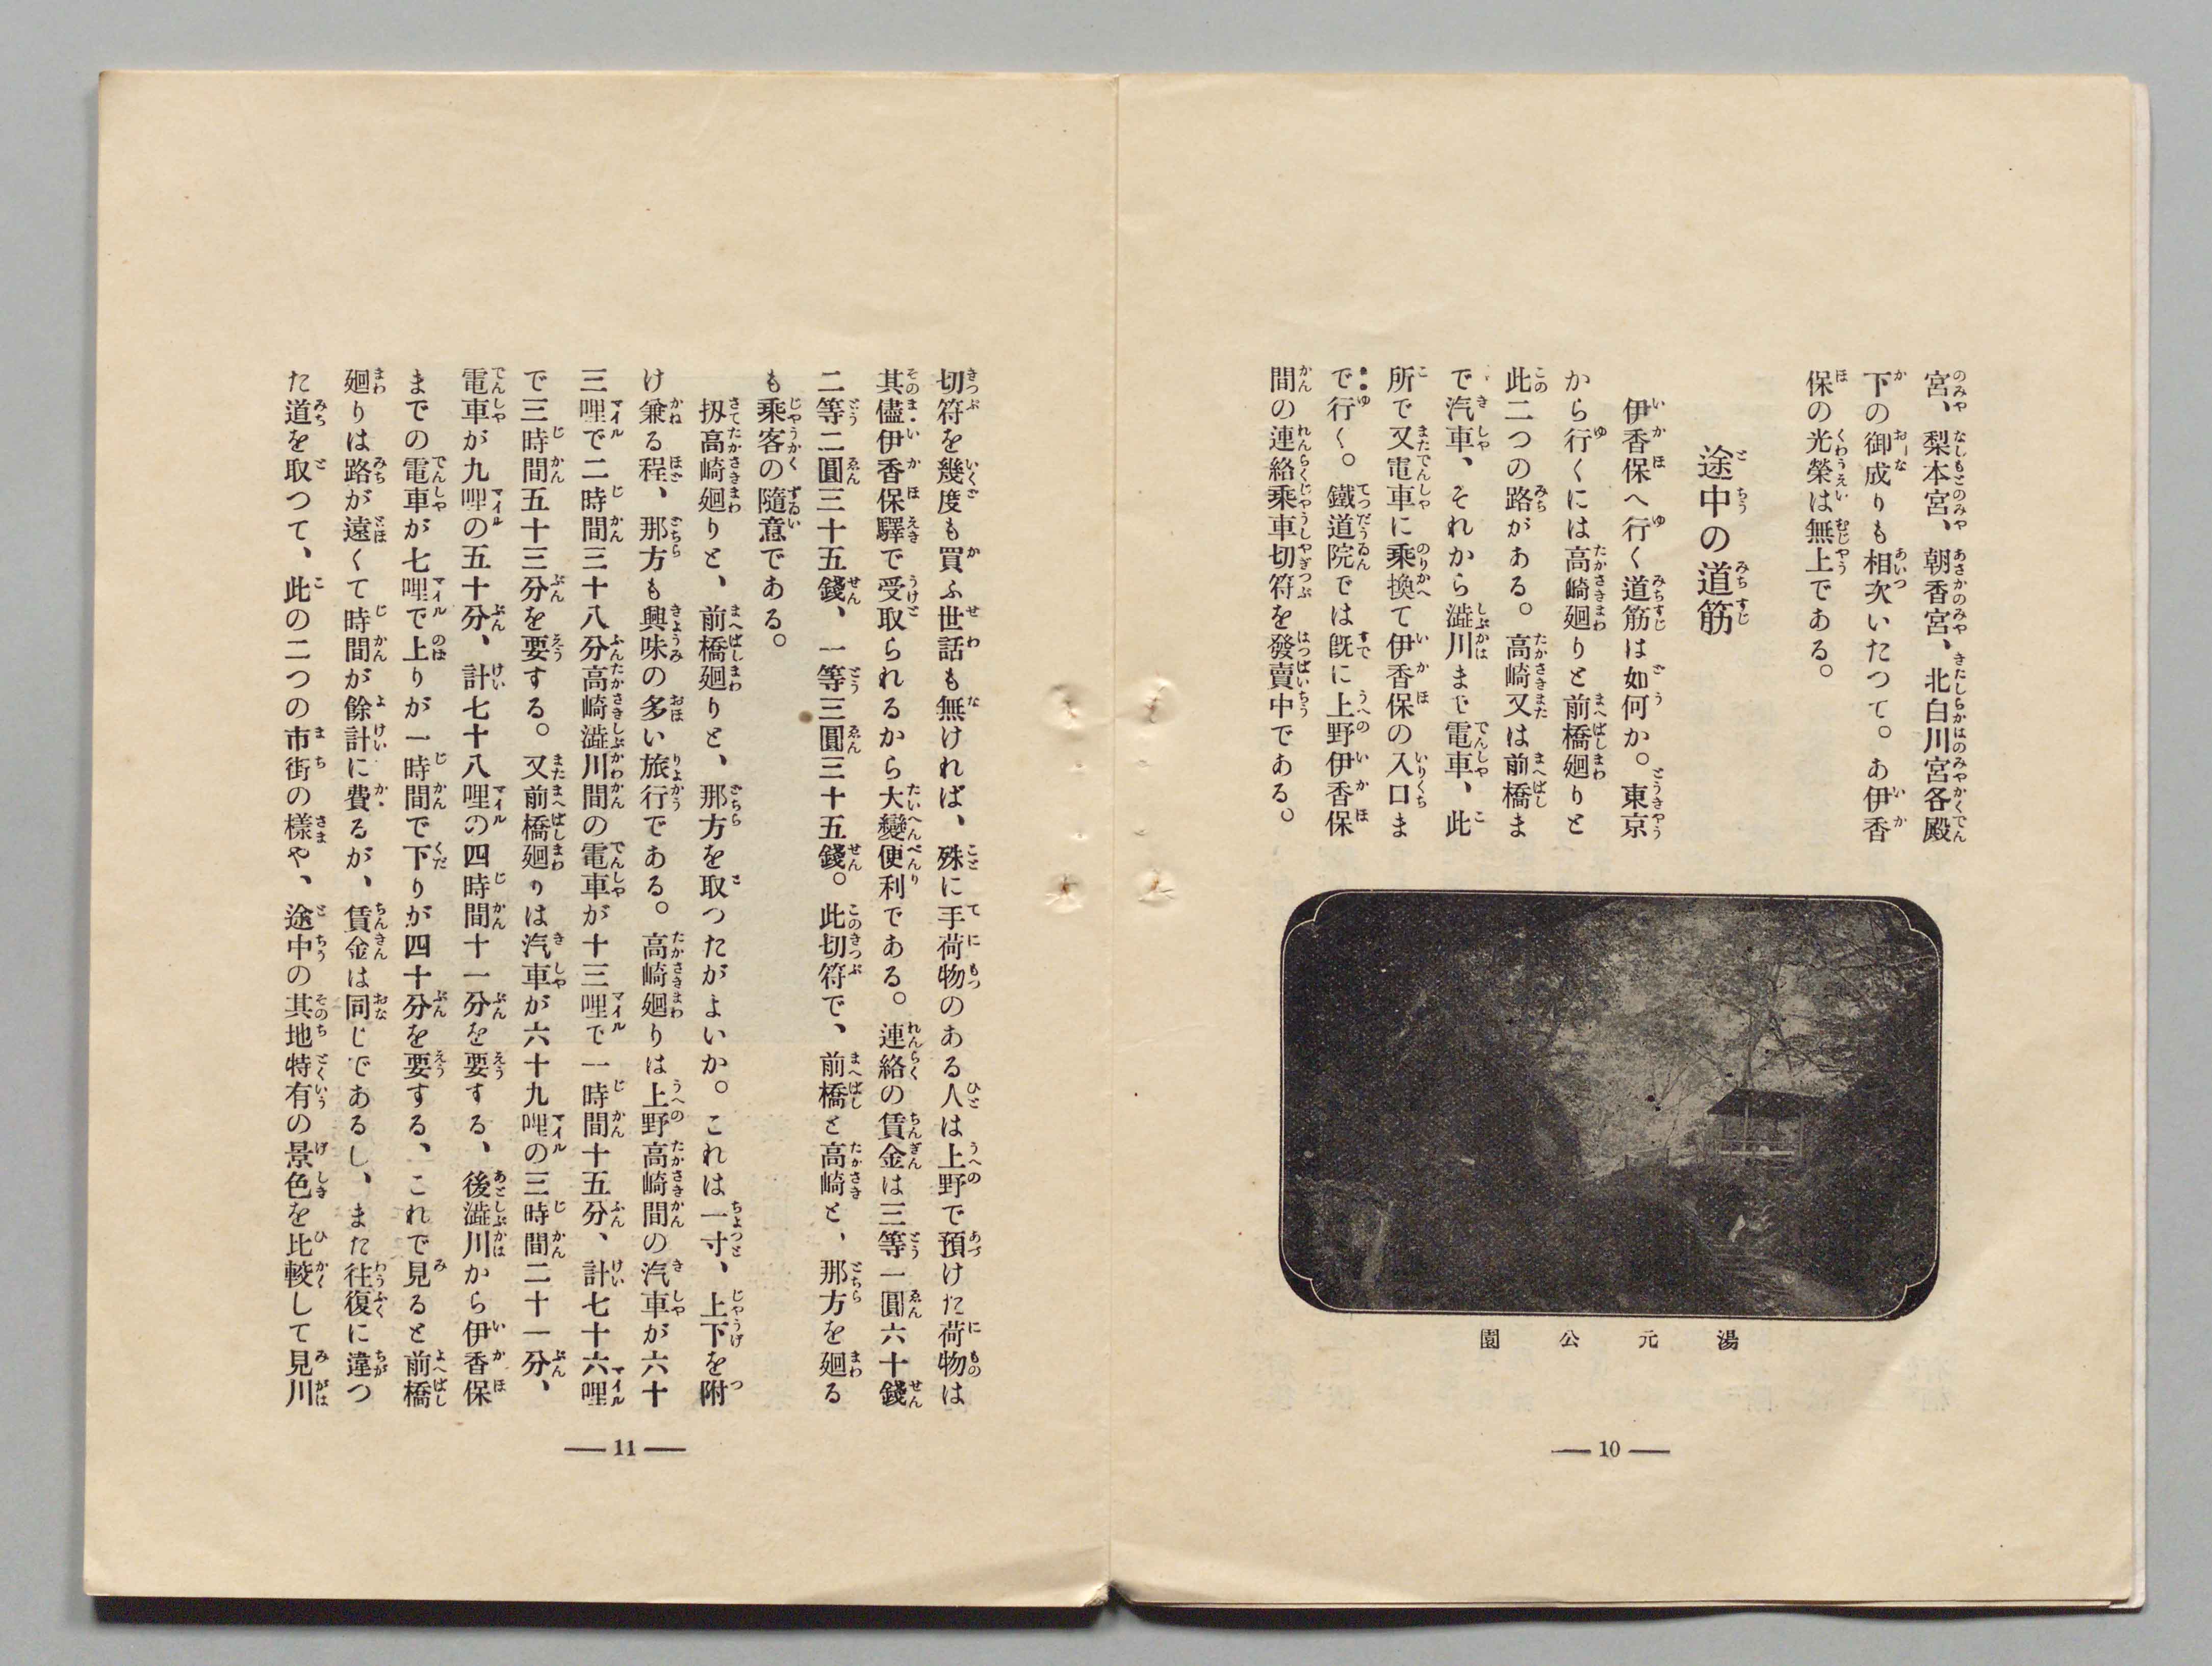 宮、梨本宮、朝香宮、北白川宮各殿
下の御成りも相次いたつて。あ伊香
保の光榮は無上である。
途中の道筋
伊香保へ行く道筋は如何か。東京
から行くには高崎廻りと前橋廻りと
此二つの路がある。高崎又は前橋ま
で汽車、それから澁川まで電車、此
所で又電車に乘換て伊香保の入口ま
で行く。鐵道院では旣に上野伊香保
間の連絡乘車切符を發賣中である。
湯元公園
— 10 —
切符を幾度も買ふ世話も無ければ、殊に手荷物のある人は上野で預けた荷物は
其儘伊香保驛で受取られるから大變便利である。連絡の賃金は三等一圓六十錢
二等二圓三十五錢、一等三圓三十五錢。此切符で、前橋と高崎と、那方を廻る
も乘客の隨意である。
扨高崎廻りと、前橋廻りと、那方を取つたがよいか。これは一寸、上下を附
け兼る程、那方も興味の多い旅行である。高崎廻りは上野高崎間の汽車が六十
三哩で二時間三十八分高崎澁川間の電車が十三哩で一時間十五分、計七十六哩
で三時間五十三分を要する。又前橋廻りは汽車が六十九哩の三時間二十一分、
電車が九哩の五十分、計七十八哩の四時間十一分を要する、後澁川から伊香保
までの電車が七哩で上りが一時間で下りが四十分を要する、これで見ると前橋
廻りは路が遠くて時間が餘計に費るが、賃金は同じであるし、また往復に違つ
た道を取つて、此の二つの市街の樣や、途中の其地特有の景色を比較して見川
— 11 —